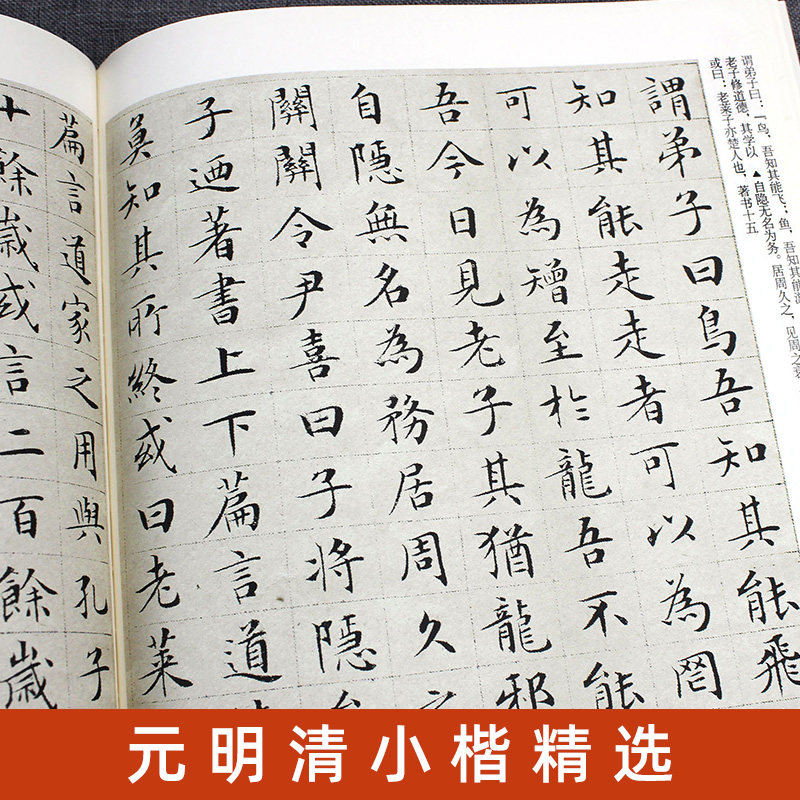 谓弟子曰：「鸟，吾知其能飞；鱼，吾知其能
老子修道德，其学以▲自隐无名为务。居周久之，见周之衰
或曰：老莱子亦楚人也，著书十五
謂弟子曰鳥吾知其能飛
知其能走走者可以為罔
可以為矰至於龍吾不能
吾今日見老子其猶龍邪
自隱無名為務居周久之
關關令尹喜曰子將隱
子迺著書上下篇言道
莫知其所終或曰老萊
篇言道家之用與孔子
十餘歲或言二百餘歲
元明清小楷精选